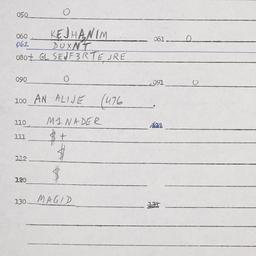 050 O
060 KEJHANIM 061 O
062 DUXNT
080+ GL SEJF3RTE JRE
090 O 091 O
100 AN ALIJE (476
110 MINADER
111 $ +
112 $
120 $
130 MAGID 131